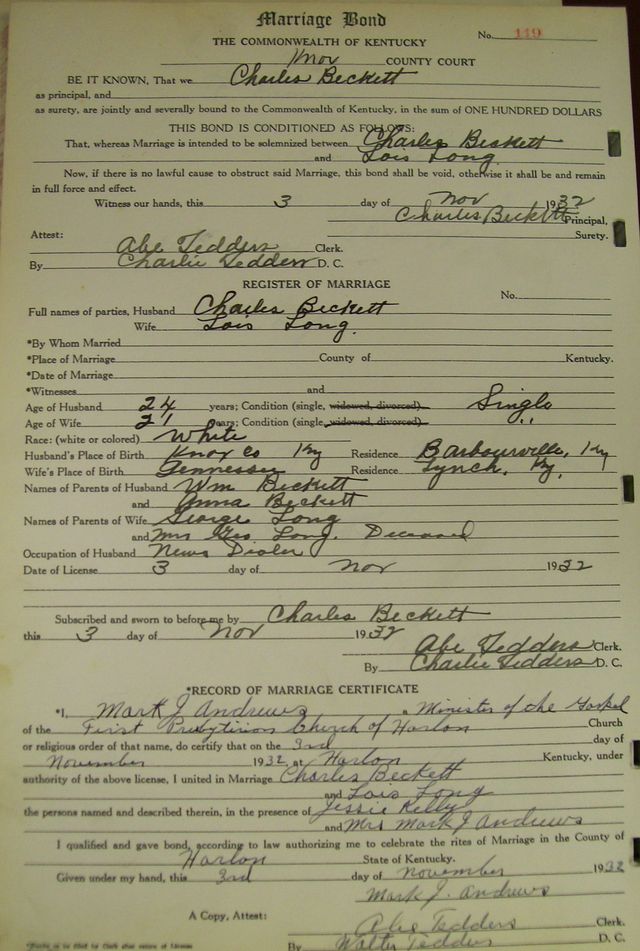 Marriage Bond
THE COMMONWEALTH OF KENTUCKY No. 119
Knox COUNTY COURT
BE IT KNOWN, That we Charles Beckett
as principal, and
as surety, are jointly and severally bound to the Commonwealth of Kentucky, in the sum of ONE HUNDRED DOLLARS
THIS BOND IS CONDITIONED AS FOLLOWS:
That, whereas Marriage is intended to be solemnized between Charles Beckett
and Lois Long
Now, if there is no lawful cause to obstruct said Marriage, this bond shall be void, otherwise it shall be and remain
in full force and effect.
Witness our hands, this 3 day of Nov 1932
Charles Beckett Principal,
Surety.
Attest:
Abe Tedders Clerk.
By Charlie Tedders D. C.
REGISTER OF MARRIAGE
No.
Full names of parties, Husband Charles Beckett
Wife Lois Long.
*By Whom Married
*Place of Marriage County of Kentucky.
*Date of Marriage
*Witnesses and
Age of Husband 24 years; Condition (single, widowed, divorced) Single
Age of Wife 21 years; Condition (single, widowed, divorced) "
Race: (white or colored) White
Husband's Place of Birth Knox Co Ky Residence Barbourville, Ky
Wife's Place of Birth Tennessee Residence Lynch, Ky.
Names of Parents of Husband Wm Beckett
and Anna Beckett
Names of Parents of Wife George Long
and Mrs Geo Long. Deceased
Occupation of Husband News Dealer
Date of License 3 day of Nov 1932
Subscribed and sworn to before me by Charles Beckett
this 3 day of Nov 1932
Abe Tedders Clerk.
By Charlie Tedders D. C.
*RECORD OF MARRIAGE CERTIFICATE
*I, Mark J Andrews a Minister of the Gospel
of the First Presbytirian Church of Harlan Church
or religious order of that name, do certify that on the 3rd day of
November 1932, at Harlan Kentucky, under
authority of the above license, I united in Marriage Charles Beckett
and Lois Long
the persons named and described therein, in the presence of Jessie Kelly
and Mrs Mark J Andrews
I qualified and gave bond, according to law authorizing me to celebrate the rites of Marriage in the County of
Harlan State of Kentucky.
Given under my hand, this 3rd day of November 1932
Mark J. Andrews
A Copy, Attest: Abe Tedders Clerk
By Walter Tedders D. C.